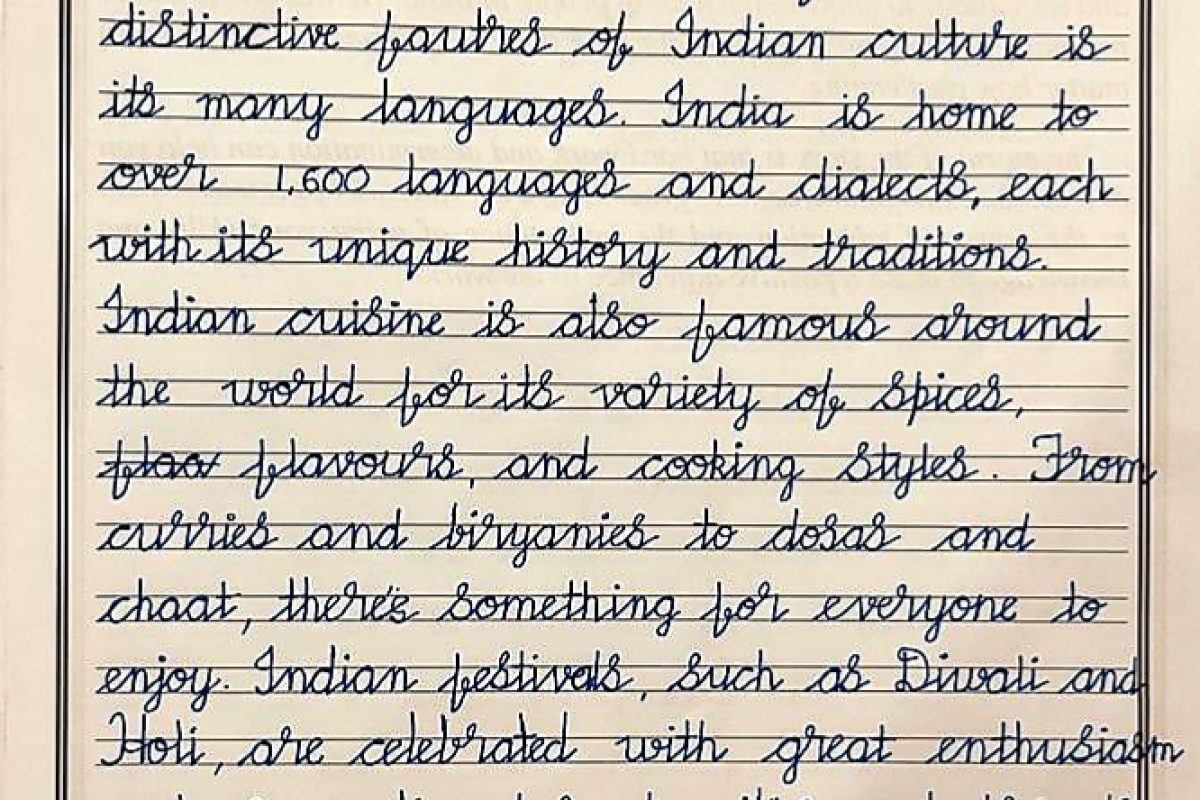 distinctive fautres of Indian culture is
its many languages. India is home to
over 1,600 languages and dialects, each
with its unique history and traditions.
Indian cuisine is also famous around
the world for its variety of spices,
flaor flavours, and cooking styles. From
curries and biryanies to dosas and
chaat, there's something for everyone to
enjoy. Indian festivals, such as Diwali and
Holi, are celebrated with great enthusiasm